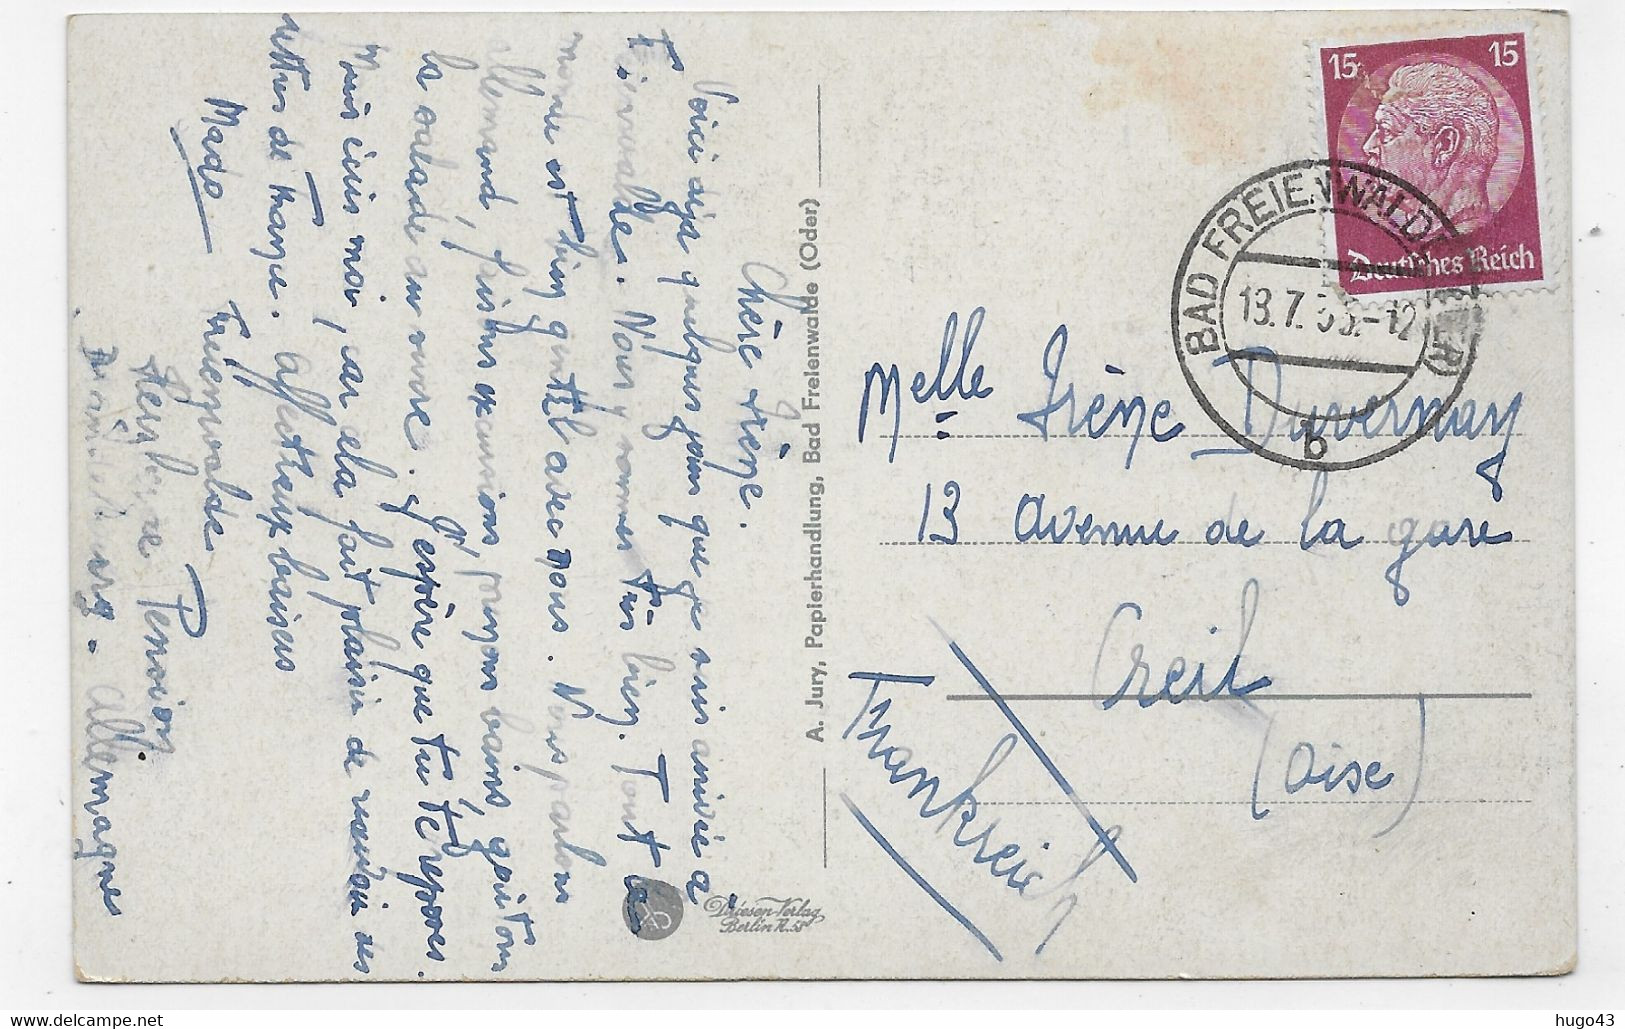 Chère Irène.
Voici déjà quelques jours que je suis arrivée à
Freienwalde. Nous y sommes très bien. Tout le
monde est bien gentil avec nous. Nous parlons
allemand, faisons excursions, prenons bains, goûtons
la salade au sucre. J'espère que tu te reposes.
Mais écris moi, car cela fait plaisir de recevoir des
lettres de France. Affectueux baisers
Mado
Freienwalde
Pension
Allemagne
A. Jury, Papierhandlung, Bad Freienwalde (Oder)
Driesen-Verlag
Berlin N.58
15 15
Deutsches Reich
BAD FREIENWALDE (ODER)
13.7. -12
b
Melle Irène Duvernay
13 avenue de la gare
Creil
(Oise)
Frankreich
hugo43